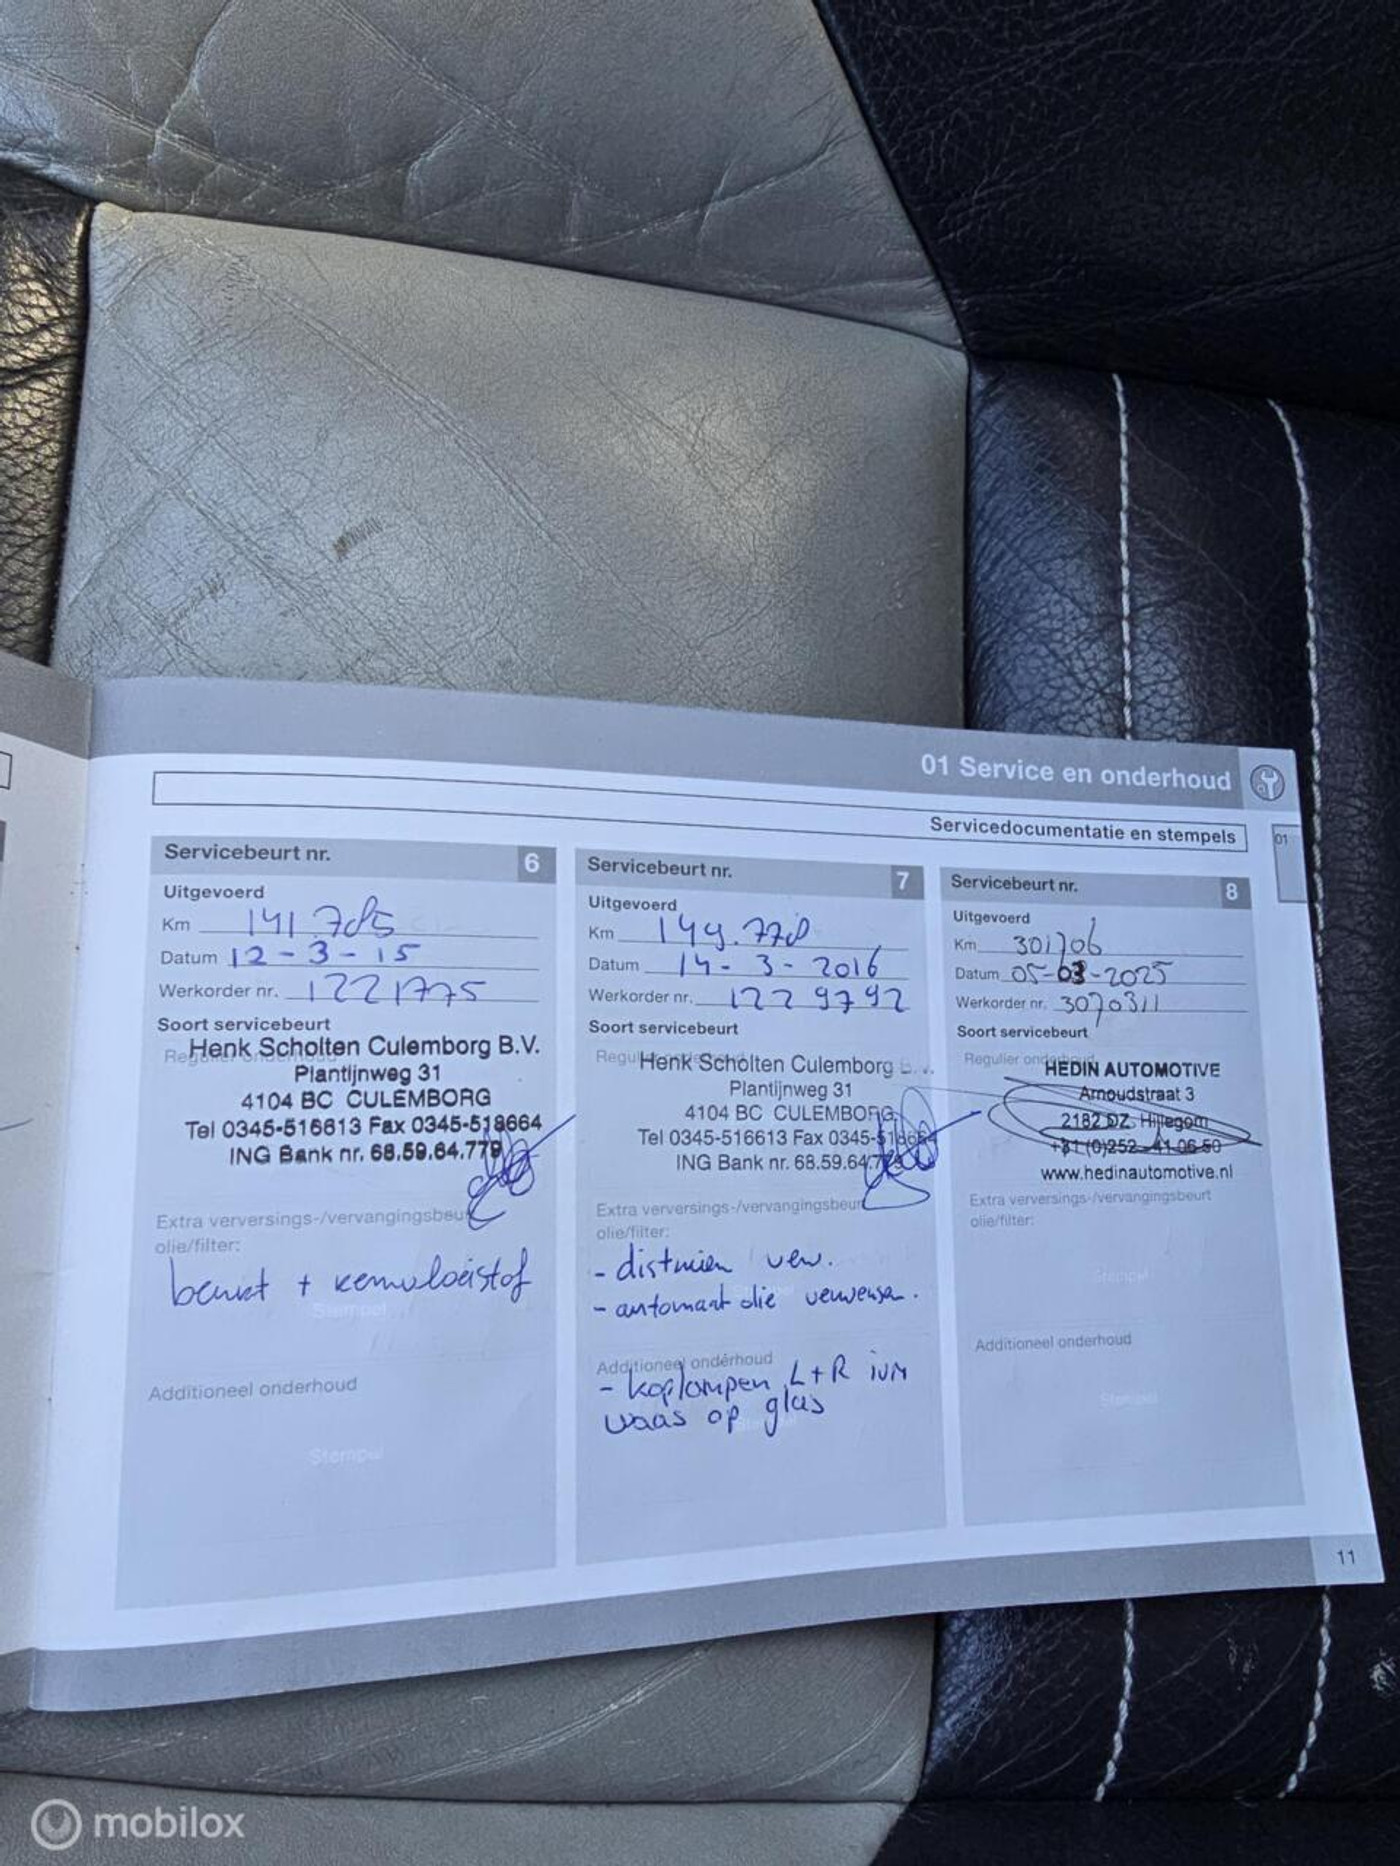 01 Service en onderhoud
Servicedocumentatie en stempels
01
Servicebeurt nr. 6
Uitgevoerd
Km 141.785
Datum 12-3-15
Werkorder nr. 1221775
Soort servicebeurt
Regulier onderhoud
Henk Scholten Culemborg B.V.
Plantijnweg 31
4104 BC CULEMBORG
Tel 0345-516613 Fax 0345-518664
ING Bank nr. 68.59.64.779
Extra verversings-/vervangingsbeurt
olie/filter:
beurt + remvloeistof
Stempel
Additioneel onderhoud
Stempel
Servicebeurt nr. 7
Uitgevoerd
Km 149.778
Datum 14-3-2016
Werkorder nr. 1229792
Soort servicebeurt
Regulier onderhoud
Henk Scholten Culemborg B.V.
Plantijnweg 31
4104 BC CULEMBORG
Tel 0345-516613 Fax 0345-518664
ING Bank nr. 68.59.64.779
Extra verversings-/vervangingsbeurt
olie/filter:
- distrien verv.
- automaat olie ververse.
Additioneel onderhoud
- koplampen L+R ivm
waas op glas
Servicebeurt nr. 8
Uitgevoerd
Km 301706
Datum 05-03-2025
Werkorder nr. 3070311
Soort servicebeurt
Regulier onderhoud
HEDIN AUTOMOTIVE
Arnoudstraat 3
2182 DZ Hillegom
+31 (0)252-41 06 50
www.hedinautomotive.nl
Extra verversings-/vervangingsbeurt
olie/filter:
Stempel
Additioneel onderhoud
Stempel
11
mobilox